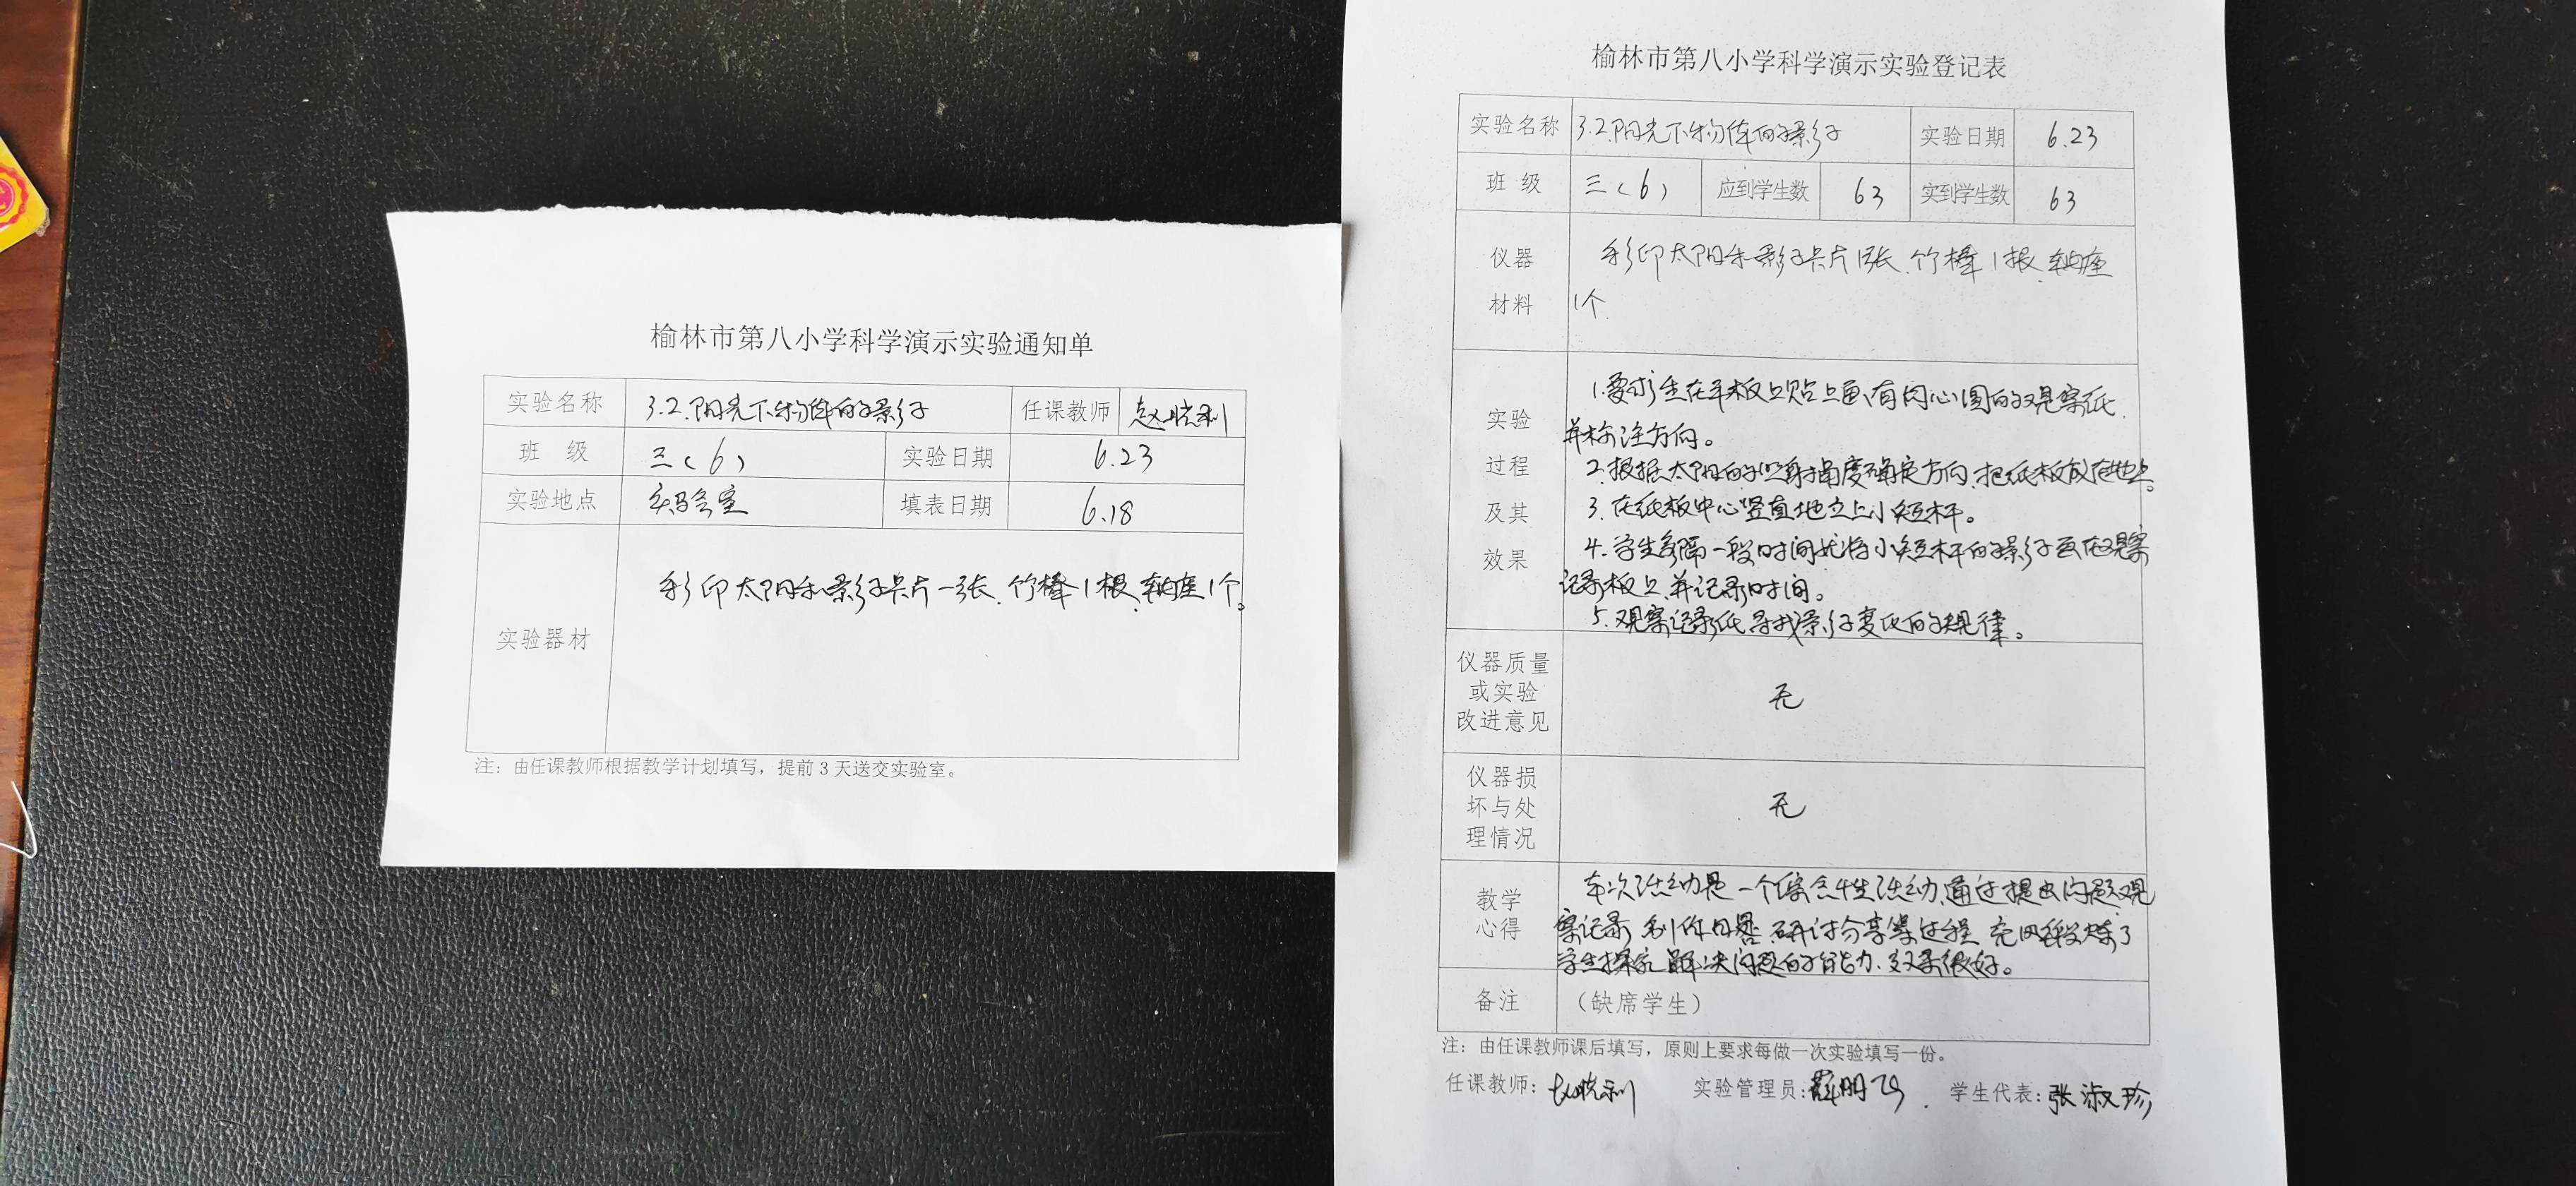 榆林市第八小学科学演示实验通知单
实验名称 3.2.阳光下物体的影子 任课教师 赵晓利
班 级 三(6) 实验日期 6.23
实验地点 实验室 填表日期 6.18
实验器材 彩印太阳和影子卡片一张、竹棒1根、轴座1个。
注：由任课教师根据教学计划填写，提前3天送交实验室。
榆林市第八小学科学演示实验登记表
实验名称 3.2.阳光下物体的影子 实验日期 6.23
班 级 三(6) 应到学生数 63 实到学生数 63
仪器 彩印太阳和影子卡片1张、竹棒1根、轴座
材料 1个.
1.要求学生在平板上贴上画有同心圆的观察纸、
实验 并标注方向。
过程 2.根据太阳的照射角度确定方向、把纸板放在地上。
及其 3.在纸板中心竖直地立上小短杆。
效果 4.学生每隔一段时间就将小短杆的影子画在观察
记录板上、并记录时间。
5.观察记录纸、寻找影子变化的规律。
仪器质量
或实验 无
改进意见
仪器损
坏与处 无
理情况
教学 本次活动是一个综合性活动、通过提出问题、观
心得 察记录、制作日晷、研讨分享等过程、充分锻炼了
学生探究、解决问题的能力、效果很好。
备注 （缺席学生）
注：由任课教师课后填写，原则上要求每做一次实验填写一份。
任课教师：赵晓利 实验管理员：薛明 学生代表：张淑珍